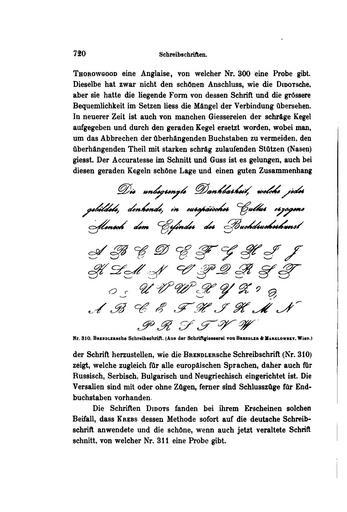 720
Schreibschriften.
THOROWGOOD eine Anglaise, von welcher Nr. 300 eine Probe gibt.
Dieselbe hat zwar nicht den schönen Anschluss, wie die DIDOTsche,
aber sie hatte die liegende Form von dessen Schrift und die grössere
Bequemlichkeit im Setzen liess die Mängel der Verbindung übersehen.
In neuerer Zeit ist auch von manchen Giessereien der schräge Kegel
aufgegeben und durch den geraden Kegel ersetzt worden, wobei man,
um das Abbrechen der überhängenden Buchstaben zu vermeiden, den
überhängenden Theil mit starken schräg zulaufenden Stützen (Nasen)
giesst. Der Accuratesse im Schnitt und Guss ist es gelungen, auch bei
diesen geraden Kegeln schöne Lage und einen guten Zusammenhang
Die unbegrenzte Dankbarkeit, welche jeder
gebildete, denkende, in europäischer Cultur erzogene
Mensch dem Erfinder der Buchdruckerkunst
A B C D E F G H I J
K L M N O P Q R S T
U V W X Y Z
A B C E F H I K M N
P R S T V W
Nr. 310. BRENDLERsche Schreibschrift. (Aus der Schriftgiesserei von BRENDLER & MARKLOWSKY, Wien.)
der Schrift herzustellen, wie die BRENDLERsche Schreibschrift (Nr. 310)
zeigt, welche zugleich für alle europäischen Sprachen, daher auch für
Russisch, Serbisch, Bulgarisch und Neugriechisch eingerichtet ist. Die
Versalien sind mit oder ohne Zügen, ferner sind Schlusszüge für End-
buchstaben vorhanden.
Die Schriften DIDOTS fanden bei ihrem Erscheinen solchen
Beifall, dass KREBS dessen Methode sofort auf die deutsche Schreib-
schrift anwendete und die schöne, wenn auch jetzt veraltete Schrift
schnitt, von welcher Nr. 311 eine Probe gibt.